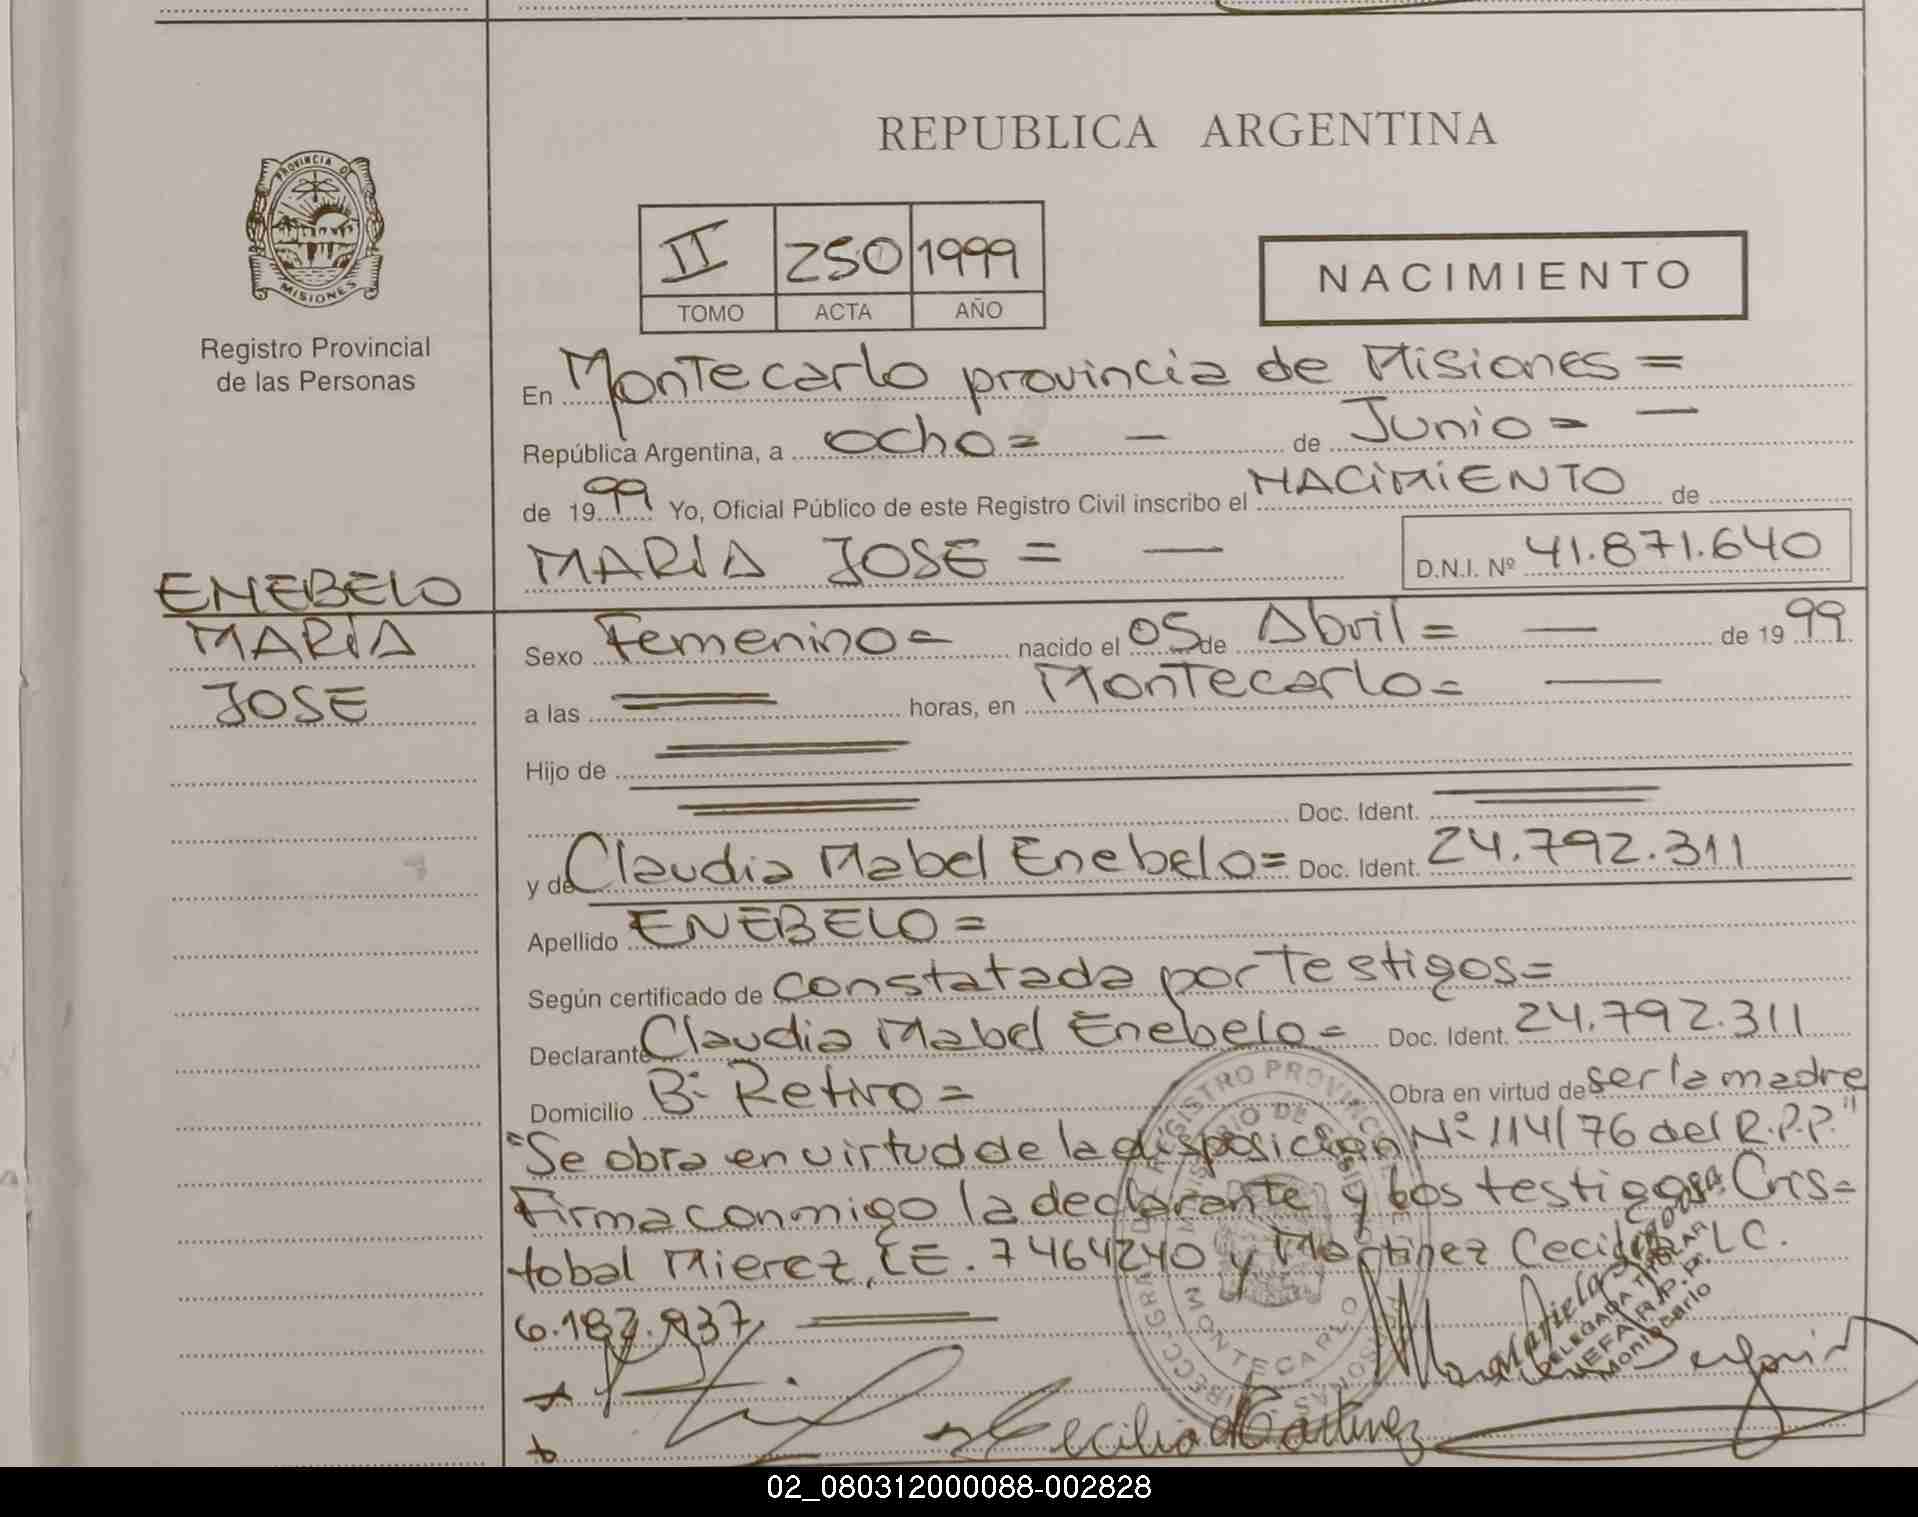 REPUBLICA ARGENTINA
PROVINCIA DE
MISIONES
Registro Provincial
de las Personas
II 250 1999
TOMO ACTA AÑO
NACIMIENTO
En Montecarlo provincia de Misiones =
República Argentina, a ocho = — de Junio = —
de 1999 Yo, Oficial Público de este Registro Civil inscribo el NACIMIENTO de
MARIA JOSE = — D.N.I. Nº 41.871.640
ENEBELO
MARIA
JOSE
Sexo Femenino = nacido el 05 de Abril = — de 1999
a las horas, en Montecarlo = —
Hijo de
Doc. Ident.
y de Claudia Mabel Enebelo = Doc. Ident. 24.792.311
Apellido ENEBELO =
Según certificado de constatada por Testigos =
Declarante Claudia Mabel Enebelo = Doc. Ident. 24.792.311
Domicilio Bº Retiro = Obra en virtud de ser la madre
"Se obra en virtud de la disposicion Nº 114/76 del R.P.P."
Firma conmigo la declarante y los testigos: Cris=
tobal Mierez, L.E. 7464240 y Martinez Cecilia LC.
6.182.937
REGISTRO PROVINCIAL
MONTECARLO
DELEGADA TITULAR
JEFA R.P.P.
Montecarlo
Cecilia Martinez
02_080312000088-002828